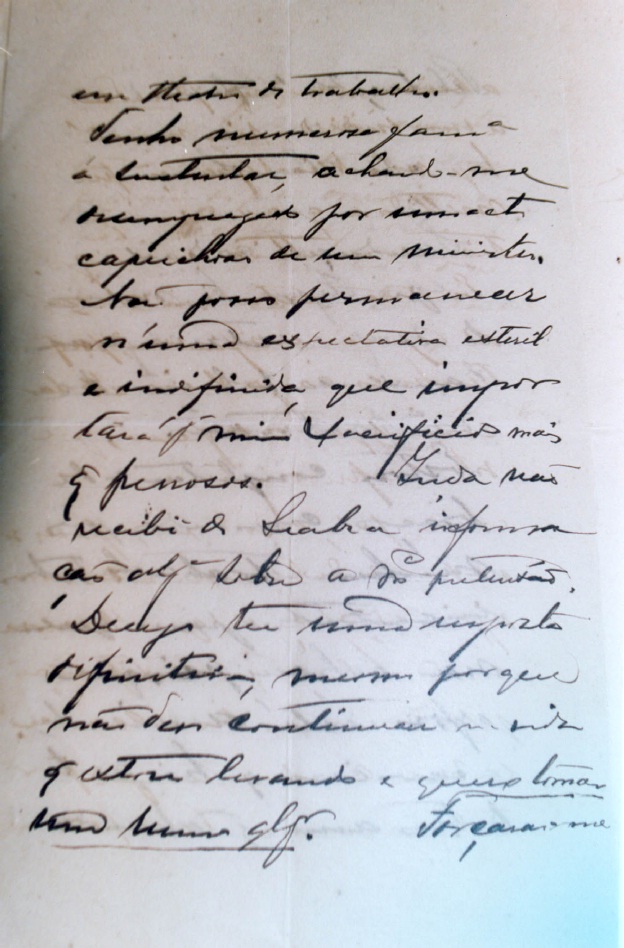 um theatro de trabalho.
Tenho numerosa fama
a sustentar, achand-me
desempregado por um act
caprichoso de um Ministro.
Não posso permanecer
n'uma expectativa esteril
e indefinida, que impor
tará pª mim sacrificios mais
q penosos. Inda não
recibi do Seabra informa
ção algª sobre a pretensão.
Desejo ter uma resposta
difinitiva, mesmo porque
não devo continuar n. vida
q estou levando e quero tomar
um rumo qlqr. Forçaram-me